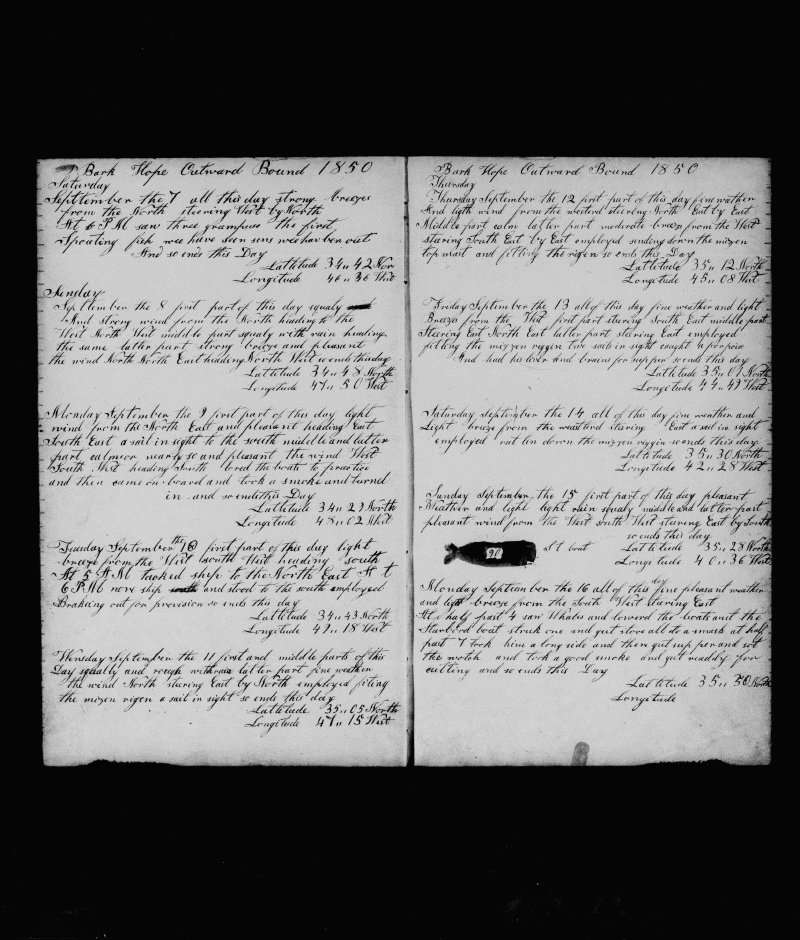 Bark Hope Outward Bound 1850
Saturday
September the 7 all this day strong breezes
from the North steering West by North
At 6 PM saw three grampuss the first
Spouting fish wee have seen sens wee hav ben out
And so ends this Day
Lattitude 34 " 42 Nor
Longitude 46 " 36 West
Sunday
September the 8 first part of this day squaly
And strong wind from the North heading to the
West North West middle part squaly with rain heading
the same latter part strong breeze and pleasant
the wind North North East heading North West so ends this day
Lattitude 34 " 48 North
Longitude 47 " 50 West
Monday September the 9 first part of this day light
wind from the North East and pleasant heading East
South East a sail in sight to the south middle and latter
part calm or nearly so and pleasant the wind West
South West heading South lored the boats to practice
and then came on board and took a smoke and turnd
in and so ends this Day
Lattitude 34 " 29 North
Longitude 48 " 02 West
Tuesday September th 10 first part of this day light
breeze from the West south West heading south
At 5 PM tacked ship to the North East At
6 PM wore ship and stood to the south employed
Braking out for provision so ends this day
Lattitude 34 " 43 North
Longitude 47 " 18 West
Wensday September the 11 first and middle parts of this
Day squaly and rough with rain latter part fine weather
the wind North stering East by North employed fiting
the mizen rigen a sail in sight so ends this day
Lattitude 35 " 05 North
Longitude 47 " 15 West
Bark Hope Outward Bound 1850
Thursday
Thursday September the 12 first part of this day fine wather
And ligth wind from the westerd stering North East by East
Middle part calm latter part moderate breeze from the West
staring South East by East employed sending down the mizen
top mast and fitting the rigen so ends this Day
Lattitude 35 " 12 North
Longitude 45 " 08 West
Friday September the 13 all of this day fine weather and light
Breeze from the West first part stering South East middle part
Steering East North East latter part steering East employed
fitting the mizzen riggin two sails in sight caught a porpoise
And had his liver and brains for supper so ends this day
Lattitude 35 " 01 North
Longitude 44 " 49 West
Saturday september the 14 all of this day fine weather and
Light breeze from the westerd stering East a sail in sight
employed rat len down the mizzen riggin so ends this day
Lattitude 35 " 30 North
Longitude 42 " 28 West
Sunday September the 15 first part of this day pleasant
Weather and light light rain squaly middle and latter part
pleasant wind from the West South West stering East by South
so ends this day
90 St boat Lattitude 35 " 28 North
Longitude 40 " 36 West
Monday September the 16 all of this day fine pleasant weather
and light breeze from the South West staring East
At half past 4 saw Whales and lowerd the boats and the
Starbord boat struck one and got stove all to a smash at half
past 7 took him a long side and then got supper and sot
the wotch and took a good smoke and got readdy for
cutting and so ends this Day
Lattitude 35 " 30 North
Longitude